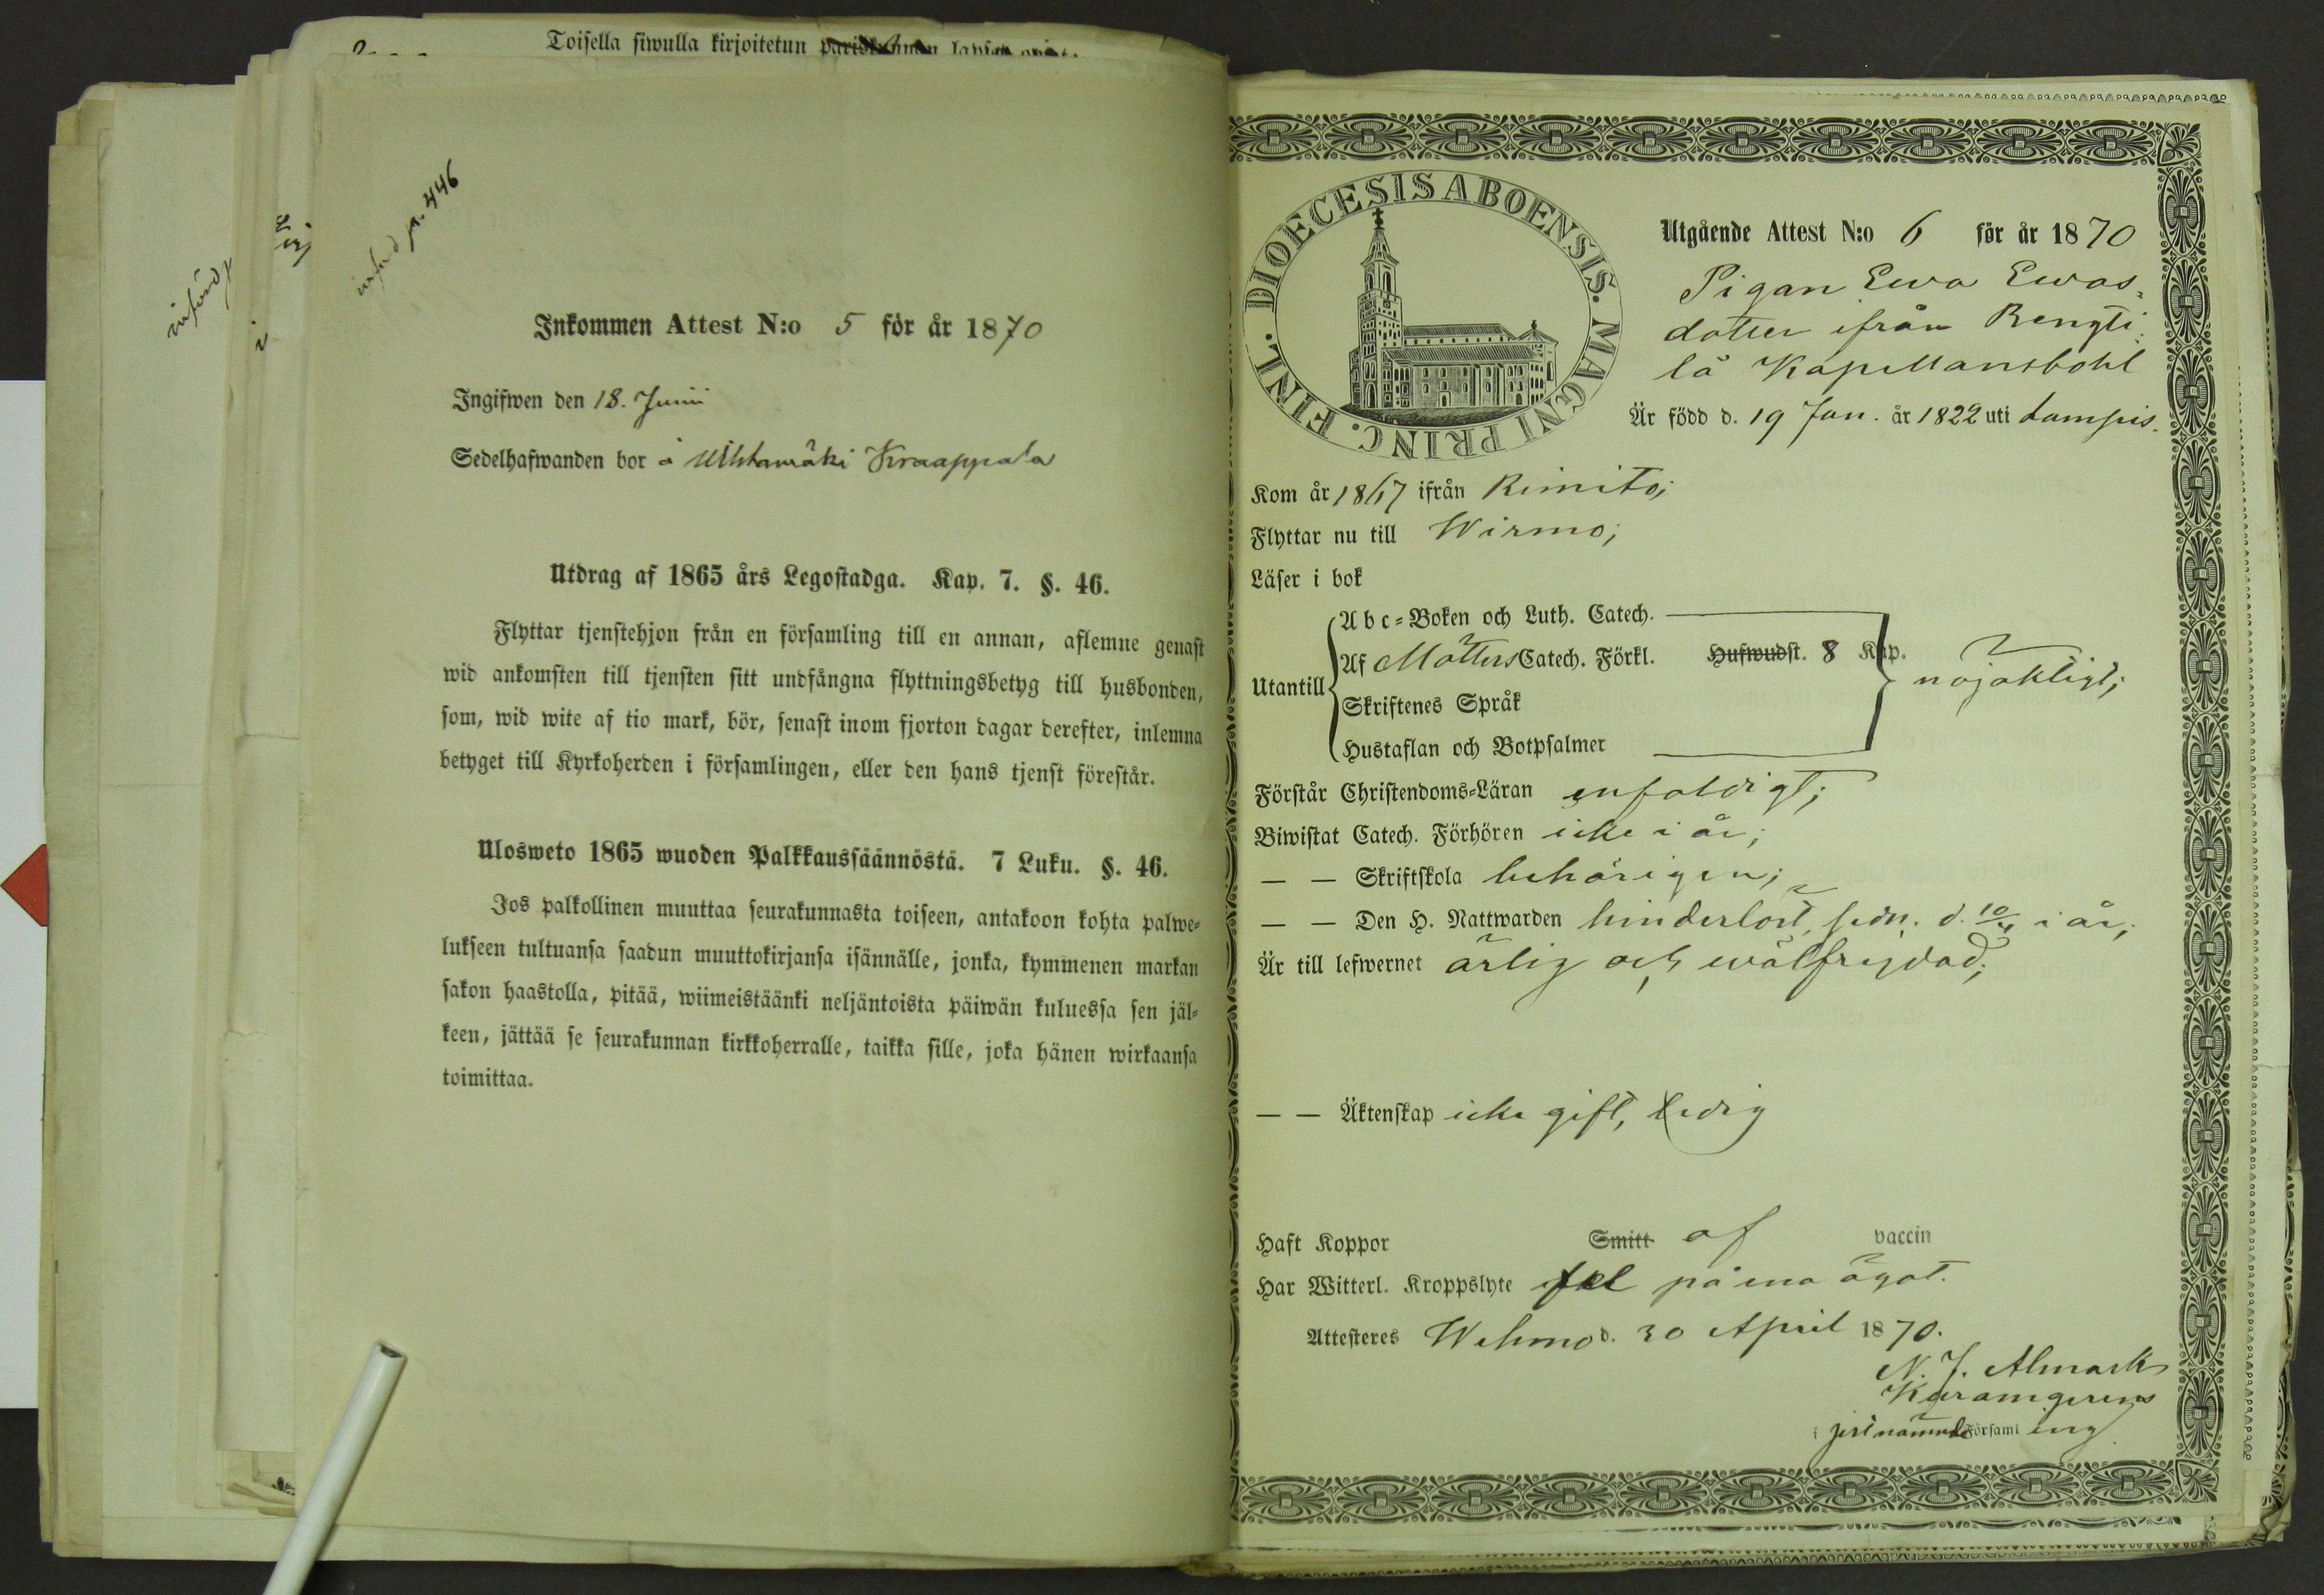 Toisella siwulla kirjoitetun
införd
införd p. 446
Inkommen Attest N:o 5 för år 1870
Ingifwen den 18. Junii
Sedelhafwanden bor å Kraappala
Utdrag af 1865 års Legostadga. Kap. 7. §. 46.
Flyttar tjenstehjon från en församling till en annan, aflemne genast
wid ankomsten till tjensten sitt undfångna flyttningsbetyg till husbonden,
som, wid wite af tio mark, bör, senast inom fjorton dagar derefter, inlemna
betyget till Kyrkoherden i församlingen, eller den hans tjenst förestår.
Ulosweto 1865 wuoden Palkkaussäännöstä. 7 Luku. §. 46.
Jos palkollinen muuttaa seurakunnasta toiseen, antakoon kohta palwe-
lukseen tultuansa saadun muuttokirjansa isännälle, jonka, kymmenen markan
sakon haastolla, pitää, wiimeistäänki neljäntoista päiwän kuluessa sen jäl-
keen, jättää se seurakunnan kirkkoherralle, taikka sille, joka hänen wirkaansa
toimittaa.
DIOECESIS ABOENSIS. MAGNI PRINC. FINL.
Utgående Attest N:o 6 för år 1870
Pigan Ewa Ewas-
dotter ifrån Bengti-
lä Kapellansbohl
Är född d. 19 Jan. år 1822 uti Lampis.
Kom år 1867 ifrån Rimito;
Flyttar nu till Wirmo;
Läser i bok
Utantill
Abc-Boken och Luth. Catech.
Af Möllers Catech. Förkl. Hufwudst. 8 Kap.
nöjaktigt;
Skriftenes Språk
Hustaflan och Botpsalmer
Förstår Christendoms-Läran enfaldigt;
Biwistat Catech. Förhören icke i år;
— — Skriftskola behörigen;
— — Den H. Nattwarden hinderlöst, sedn. d. 10/4 i år;
Är till lefwernet ärlig och wälfrejdad;
— — Äktenskap icke gift, ledig
Haft Koppor Smitt af vaccin
Har Witterl. Kroppslyte fel på ena ögat.
Attesteres Wehmo d. 30 April 1870.
N. J. Almark
i Församling